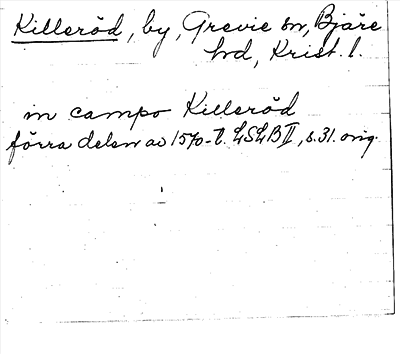 Killeröd, by, Grevie sn, Bjäre
hd, Krist. l.
in campo Killeröd
förra delen av 1570-t. LSLB II, s. 31. orig.